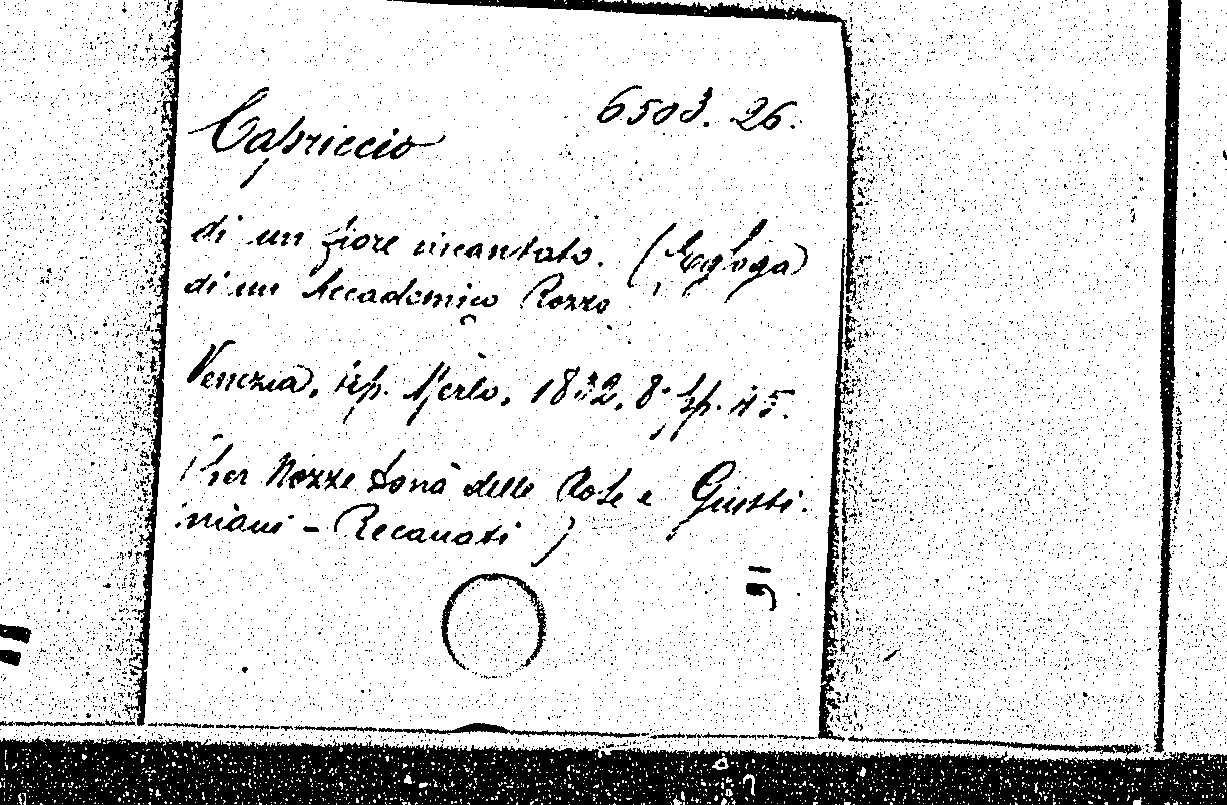 6503. 26.
Capriccio
di un fiore incantato. (Egloga
di un Accademico Rozzo
Venezia, tip. Merlo, 1832, 8° pp. 45.
(Per Nozze Donà delle Rose e Giusti-
niani - Recanati)